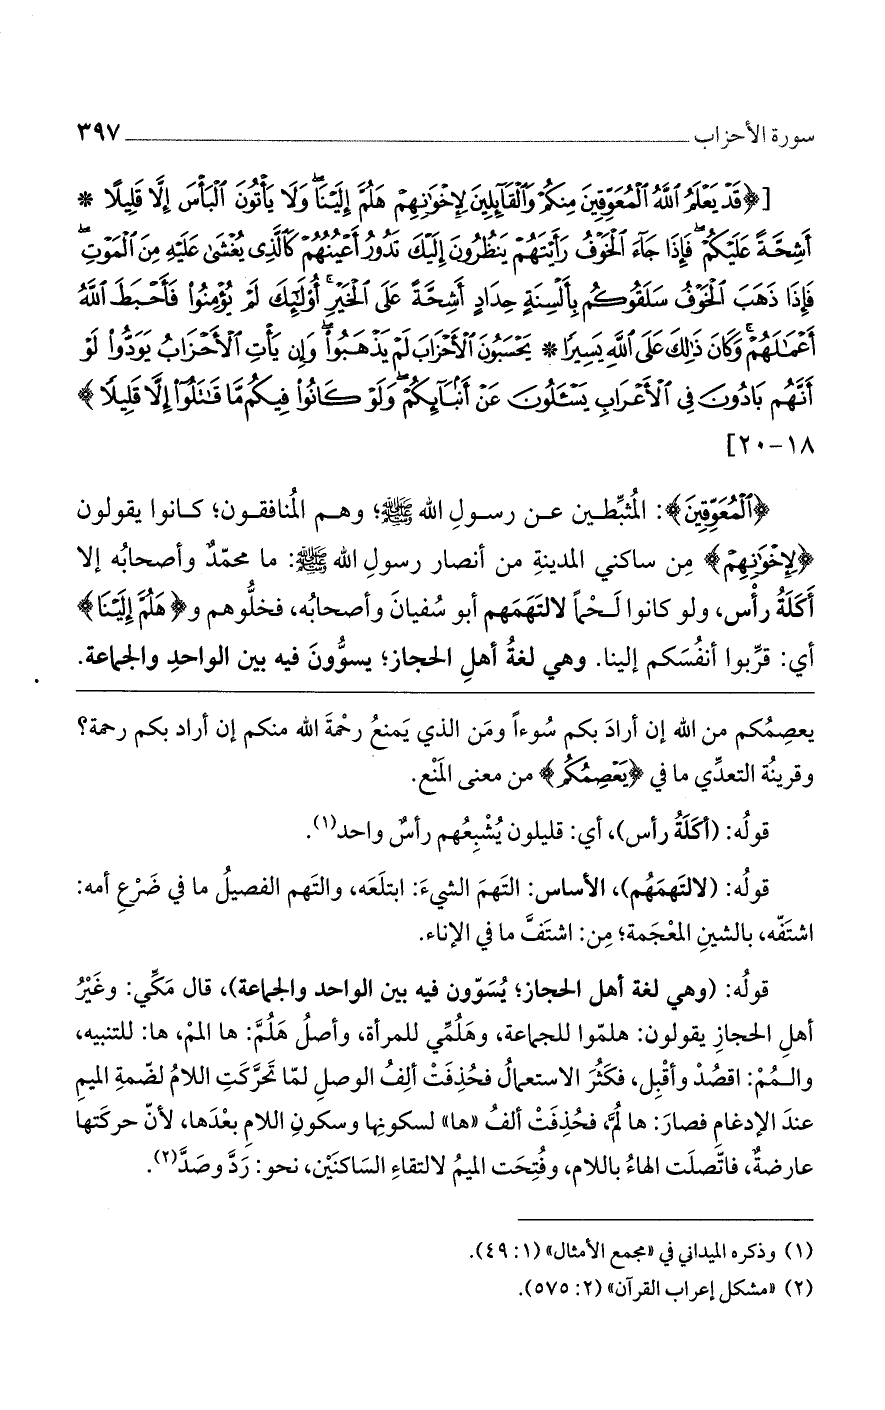 سورة الأحزاب ٣٩٧
[﴿قَدْ يَعْلَمُ ٱللَّهُ ٱلْمُعَوِّقِينَ مِنكُمْ وَٱلْقَآئِلِينَ لِإِخْوَٰنِهِمْ هَلُمَّ إِلَيْنَا ۖ وَلَا يَأْتُونَ ٱلْبَأْسَ إِلَّا قَلِيلًا *
أَشِحَّةً عَلَيْكُمْ ۖ فَإِذَا جَآءَ ٱلْخَوْفُ رَأَيْتَهُمْ يَنظُرُونَ إِلَيْكَ تَدُورُ أَعْيُنُهُمْ كَٱلَّذِى يُغْشَىٰ عَلَيْهِ مِنَ ٱلْمَوْتِ ۖ
فَإِذَا ذَهَبَ ٱلْخَوْفُ سَلَقُوكُم بِأَلْسِنَةٍ حِدَادٍ أَشِحَّةً عَلَى ٱلْخَيْرِ ۚ أُو۟لَٰٓئِكَ لَمْ يُؤْمِنُوا۟ فَأَحْبَطَ ٱللَّهُ
أَعْمَٰلَهُمْ ۚ وَكَانَ ذَٰلِكَ عَلَى ٱللَّهِ يَسِيرًا * يَحْسَبُونَ ٱلْأَحْزَابَ لَمْ يَذْهَبُوا۟ ۖ وَإِن يَأْتِ ٱلْأَحْزَابُ يَوَدُّوا۟ لَوْ
أَنَّهُم بَادُونَ فِى ٱلْأَعْرَابِ يَسْـَٔلُونَ عَنْ أَنۢبَآئِكُمْ ۖ وَلَوْ كَانُوا۟ فِيكُم مَّا قَٰتَلُوٓا۟ إِلَّا قَلِيلًا﴾
١٨-٢٠]
﴿ٱلْمُعَوِّقِينَ﴾: المُثبِّطين عن رسولِ الله ﷺ؛ وهم المُنافقون؛ كانوا يقولون
﴿لِإِخْوَٰنِهِمْ﴾ مِن ساكني المدينةِ من أنصار رسولِ الله ﷺ: ما محمّدٌ وأصحابُه إلا
أَكَلَةُ رأْس، ولو كانوا لَحْماً لالتَهَمَهم أبو سُفيانَ وأصحابُه، فخلُّوهم و﴿هَلُمَّ إِلَيْنَا﴾
أي: قرِّبوا أنفُسَكم إلينا. وهي لغةُ أهلِ الحجاز؛ يسوُّونَ فيه بين الواحدِ والجماعة.
يعصِمُكم من الله إن أرادَ بكم سُوءاً ومَن الذي يَمنعُ رحْمةَ الله منكم إن أراد بكم رحمة؟
وقرينُة التعدِّي ما في ﴿يَعْصِمُكُمْ﴾ من معنى المَنْع.
قولُه: (أكَلَةُ رأس)، أي: قليلون يُشْبِعُهم رأسٌ واحد(١).
قولُه: (لالتَهمَهُم)، الأساس: التَهمَ الشيءَ: ابتلَعَه، والتَهم الفصيلُ ما في ضَرْعِ أمه:
اشتَفّه، بالشينِ المعْجَمة؛ مِن: اشتَفَّ ما في الإناء.
قولُه: (وهي لغة أهل الحجاز؛ يُسَوّون فيه بين الواحد والجماعة)، قال مَكِّي: وغَيْرُ
أهلِ الحجازِ يقولون: هلمّوا للجماعة، وهَلُمِّي للمرأة، وأصلُ هَلُمَّ: ها المم، ها: للتنبيه،
والـمُمْ: اقصُدْ وأقْبِل، فكَثُرَ الاستعمالُ فحُذِفَتْ ألِفُ الوصلِ لمّا تَحَرَّكَتِ اللامُ لضّمةِ الميمِ
عندَ الإدغامِ فصارَ: ها لُمَّ، فحُذِفَتْ ألفُ «ها» لسكونِها وسكونِ اللامِ بعْدَها، لأنّ حركتَها
عارضةٌ، فاتّصلَت الهاءُ باللام، وفُتِحَت الميمُ لالتقاءِ السَاكنَيْن، نحو: رَدَّ وصَدَّ(٢).
(١) وذكره الميداني في «مجمع الأمثال» (١: ٤٩).
(٢) «مشكل إعراب القرآن» (٢: ٥٧٥).